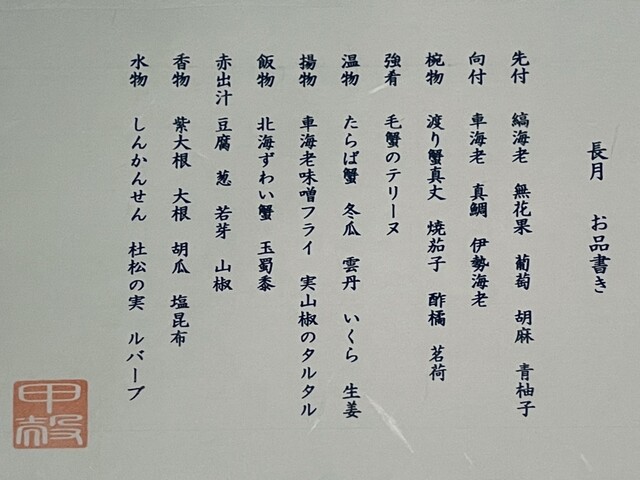 長月　お品書き
先付　縞海老　無花果　葡萄　胡麻　青柚子
向付　車海老　真鯛　伊勢海老
椀物　渡り蟹真丈　焼茄子　酢橘　茗荷
強肴　毛蟹のテリーヌ
温物　たらば蟹　冬瓜　雲丹　いくら　生姜
揚物　車海老味噌フライ　実山椒のタルタル
飯物　北海ずわい蟹　玉蜀黍
赤出汁　豆腐　葱　若芽　山椒
香物　紫大根　大根　胡瓜　塩昆布
水物　しんかんせん　杜松の実　ルバーブ
甲殻